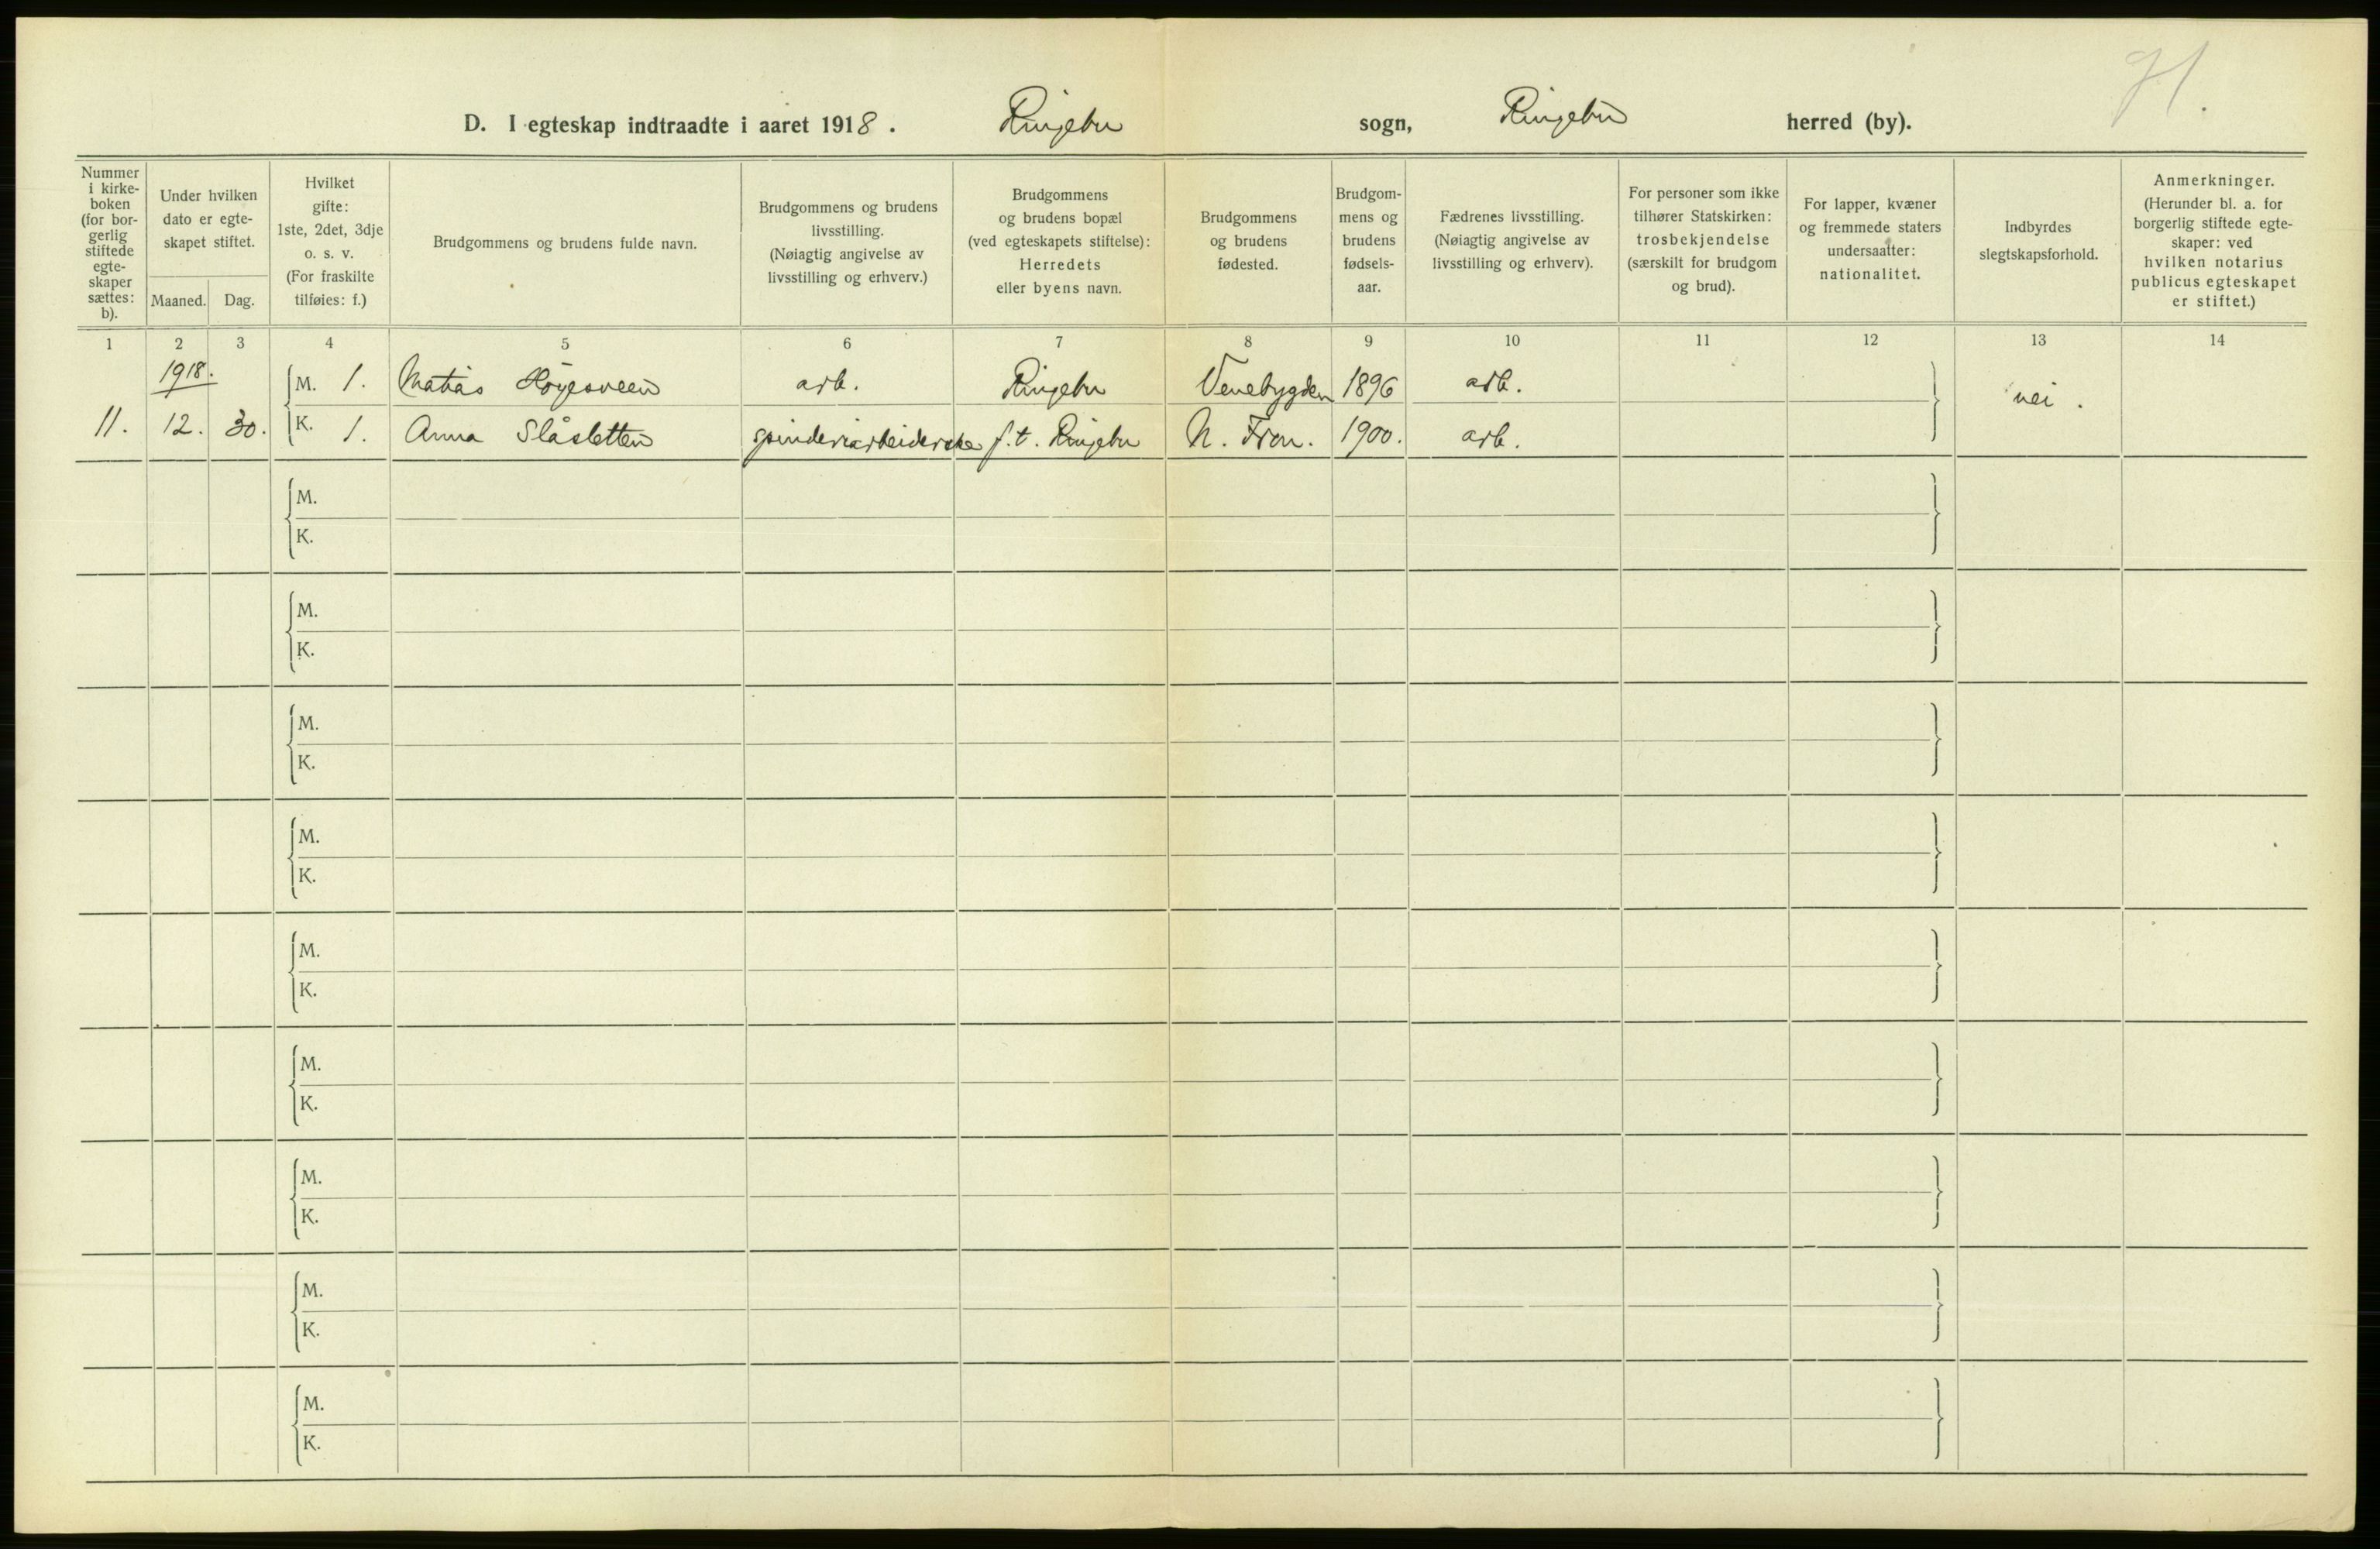 D. I egteskap indtraadte i aaret 1918. Ringebu sogn, Ringebu herred (by).
Nummer
i kirke-
boken
(for bor-
gerlig
stiftede
egte-
skaper
sættes:
b).
Under hvilken
dato er egte-
skapet stiftet.
Maaned. Dag.
Hvilket
gifte:
1ste, 2det, 3dje
o. s. v.
(For fraskilte
tilføies: f.)
Brudgommens og brudens fulde navn.
Brudgommens og brudens
livsstilling.
(Nøiagtig angivelse av
livsstilling og erhverv.)
Brudgommens
og brudens bopæl
(ved egteskapets stiftelse):
Herredets
eller byens navn.
Brudgommens
og brudens
fødested.
Brudgom-
mens og
brudens
fødsels-
aar.
Fædrenes livsstilling.
(Nøiagtig angivelse av
livsstilling og erhverv).
For personer som ikke
tilhører Statskirken:
trosbekjendelse
(særskilt for brudgom
og brud).
For lapper, kvæner
og fremmede staters
undersaatter:
nationalitet.
Indbyrdes
slegtskapsforhold.
Anmerkninger.
(Herunder bl. a. for
borgerlig stiftede egte-
skaper: ved
hvilken notarius
publicus egteskapet
er stiftet.)
1 2 3 4 5 6 7 8 9 10 11 12 13 14
1918.
M. 1. Matias arb. Ringebu Venebygden 1896 arb. nei.
11. 12. 30. K. 1. Anna Slåsletten spinderiarbeiderske f.t. Ringebu N. Fron. 1900. arb.
M.
K.
M.
K.
M.
K.
M.
K.
M.
K.
M.
K.
M.
K.
M.
K.
M.
K.